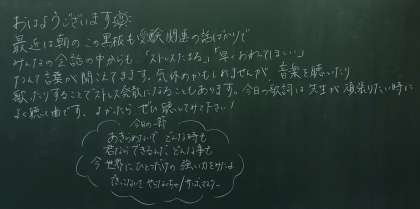 おはようございます
最近は朝のこの黒板も受験関連の話ばかりで
みんなの会話の中からも「ストレスたまる」「早くおわってほしい」
なんて言葉が聞こえてきます。気休めかもしれませんが、音楽を聴いたり
歌ったりすることでストレス発散になることもあります。今日の歌詞は先生が頑張りたい時に
よく聴く曲です。よかったらぜひ聴いてみて下さい!
今日の一節
あきらめないで どんな時も
君なら できるんだ どんな事も
今 世界にひとつだけの 強い力をみたよ